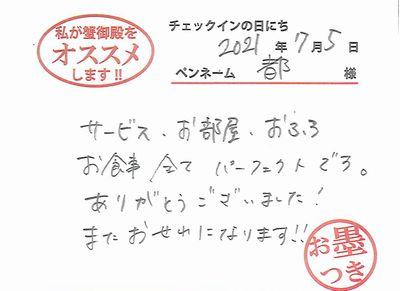 私が蟹御殿を
オススメ
します!!
チェックインの日にち
2021年7月5日
ペンネーム 都 様
サービス、お部屋、おふろ
お食事 全て パーフェクトです。
ありがとうございました!
またおせわになります!!
お墨
つき